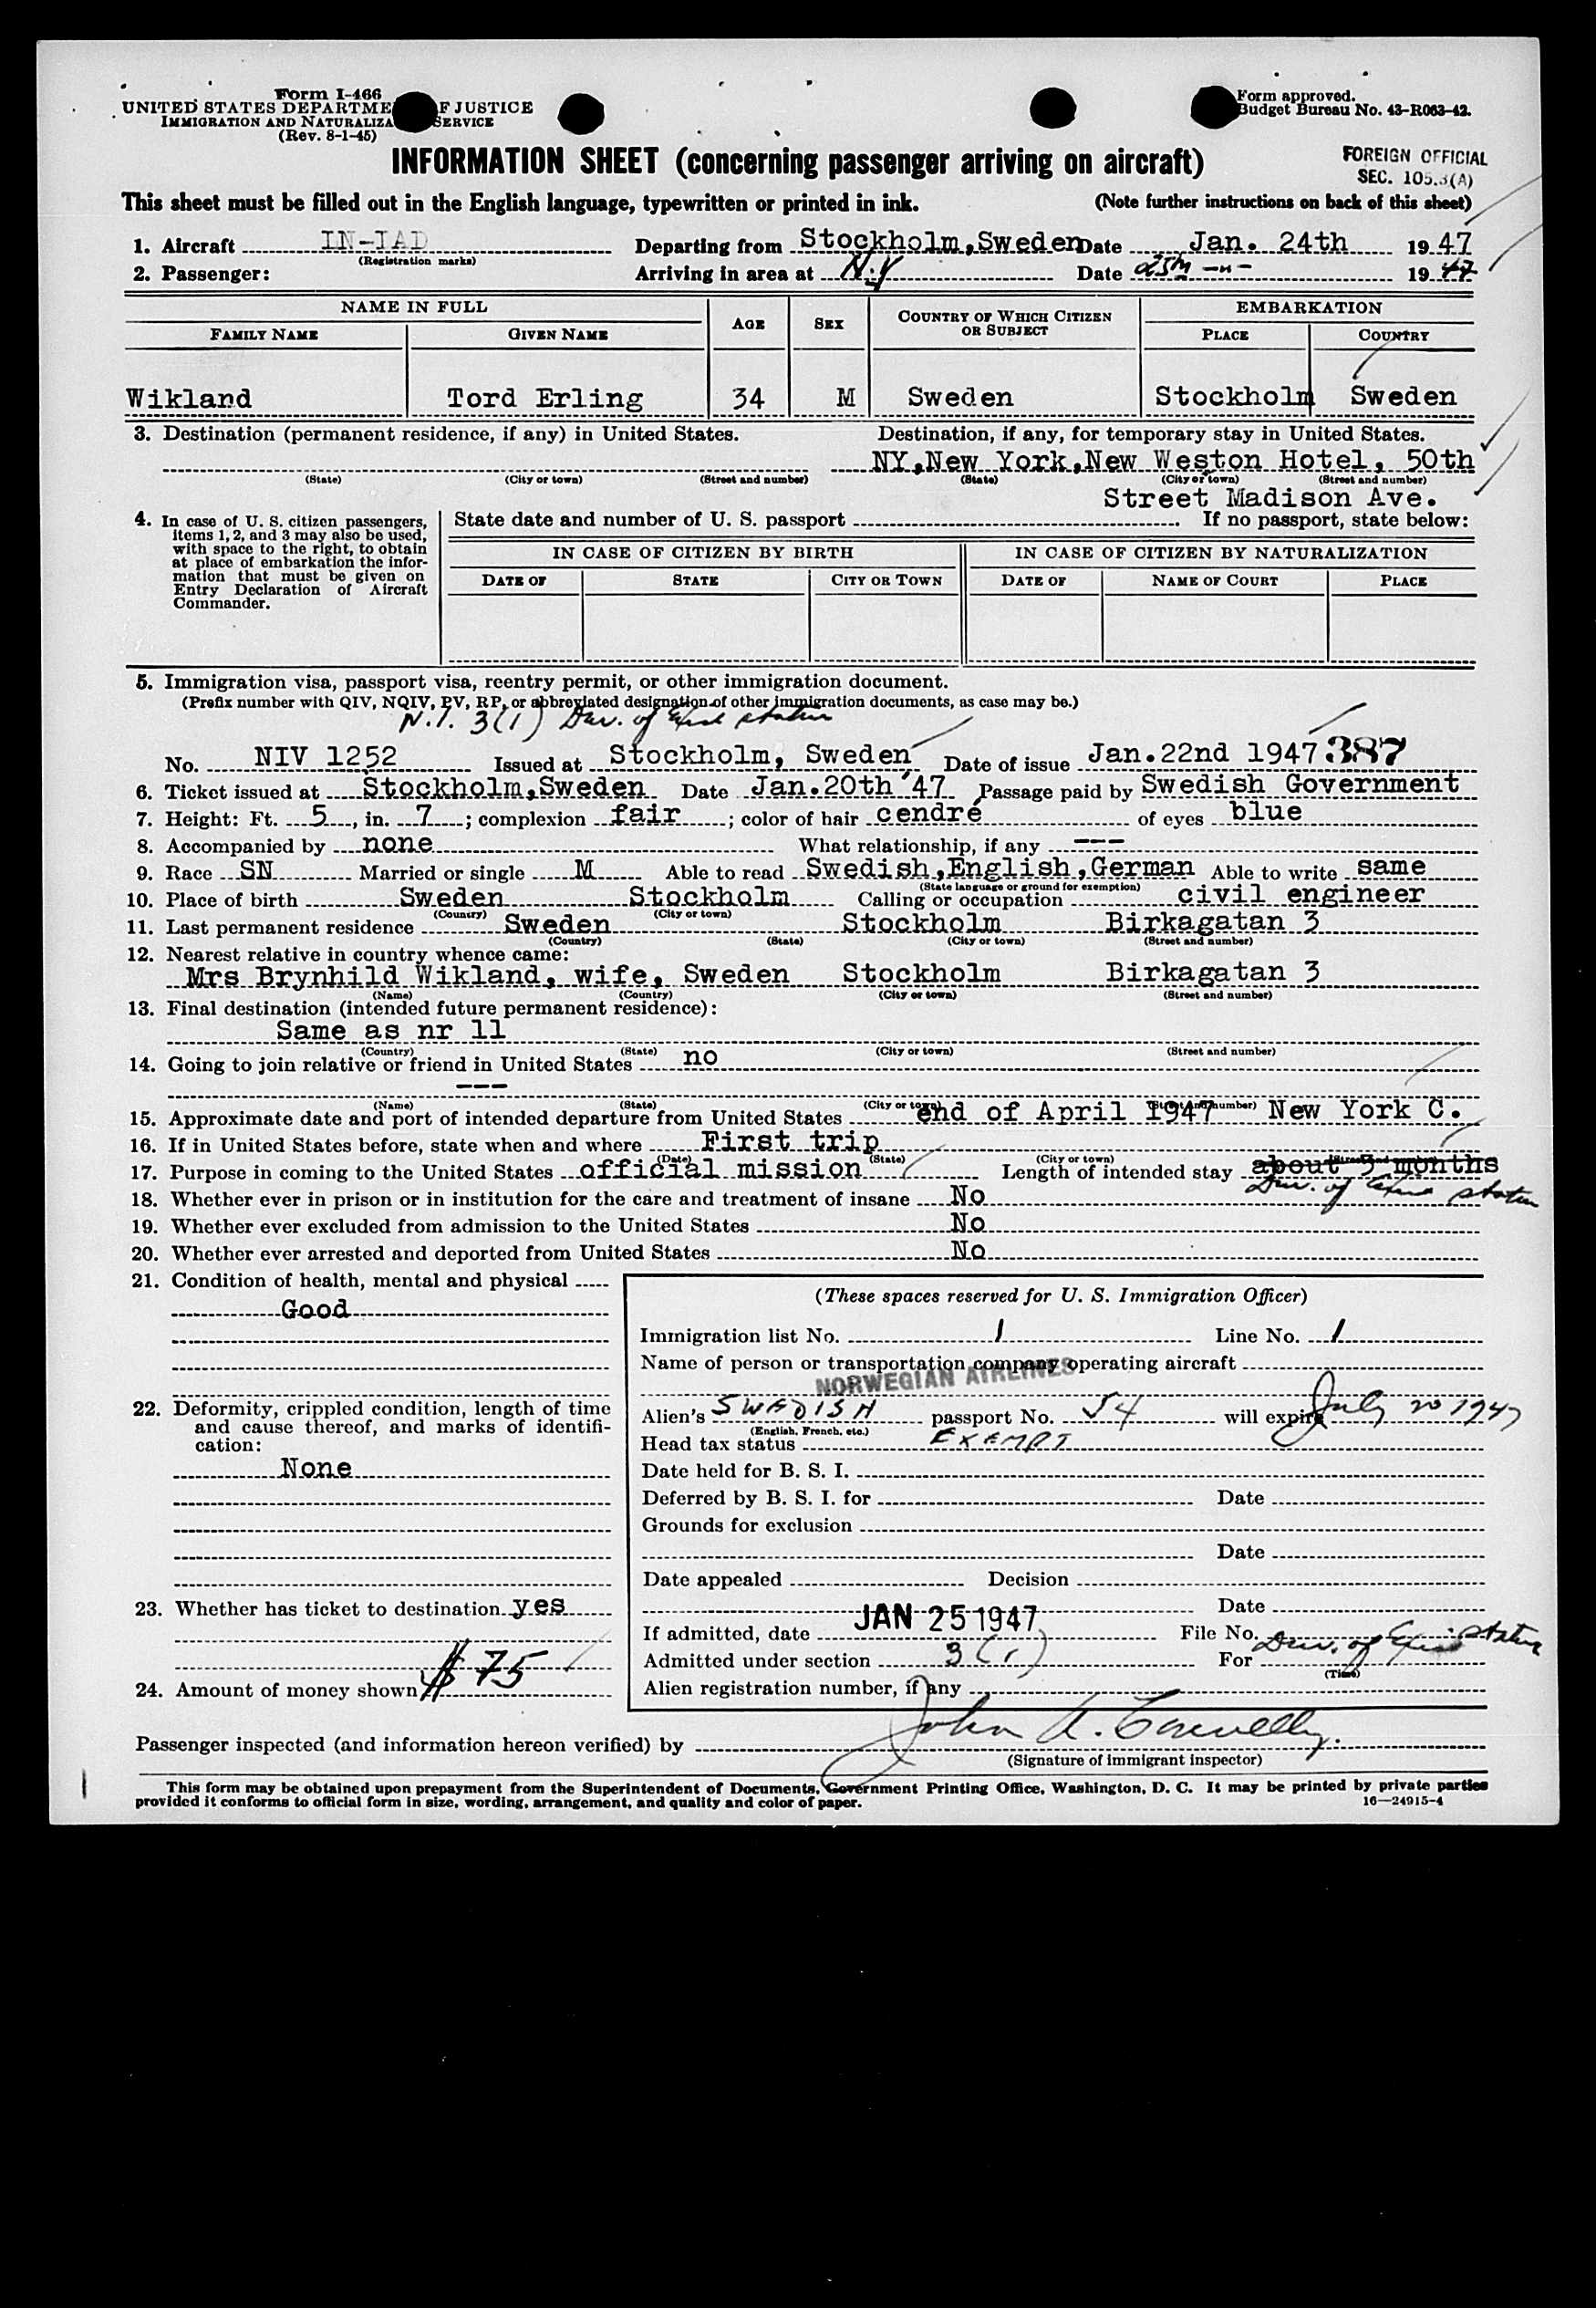 Form I-466
UNITED STATES DEPARTME F JUSTICE
IMMIGRATION AND NATURALIZA SERVICE
(Rev. 8-1-45)
Form approved.
Budget Bureau No. 43-R063-42.
INFORMATION SHEET (concerning passenger arriving on aircraft)
FOREIGN OFFICIAL
SEC. 105.3(A)
This sheet must be filled out in the English language, typewritten or printed in ink. (Note further instructions on back of this sheet)
1. Aircraft LN-IAD Departing from Stockholm,Sweden Date Jan. 24th 19 47
(Registration marks)
2. Passenger: Arriving in area at N.Y Date 25th -"- 19 47
NAME IN FULL AGE SEX COUNTRY OF WHICH CITIZEN OR SUBJECT EMBARKATION
FAMILY NAME GIVEN NAME PLACE COUNTRY
Wikland Tord Erling 34 M Sweden Stockholm Sweden
3. Destination (permanent residence, if any) in United States. Destination, if any, for temporary stay in United States.
NY,New York,New Weston Hotel, 50th
(State) (City or town) (Street and number) (State) (City or town) (Street and number)
Street Madison Ave.
4. In case of U. S. citizen passengers, items 1, 2, and 3 may also be used, with space to the right, to obtain at place of embarkation the information that must be given on Entry Declaration of Aircraft Commander.
State date and number of U. S. passport . If no passport, state below:
IN CASE OF CITIZEN BY BIRTH IN CASE OF CITIZEN BY NATURALIZATION
DATE OF STATE CITY OR TOWN DATE OF NAME OF COURT PLACE
5. Immigration visa, passport visa, reentry permit, or other immigration document.
(Prefix number with QIV, NQIV, PV, RP, or abbreviated designation of other immigration documents, as case may be.)
N.I. 3(1) Dur. of status
No. NIV 1252 Issued at Stockholm, Sweden Date of issue Jan.22nd 1947 387
6. Ticket issued at Stockholm,Sweden Date Jan.20th '47 Passage paid by Swedish Government
7. Height: Ft. 5, in. 7; complexion fair; color of hair cendré of eyes blue
8. Accompanied by none What relationship, if any ---
9. Race SN Married or single M Able to read Swedish,English,German Able to write same
(State language or ground for exemption)
10. Place of birth Sweden Stockholm Calling or occupation civil engineer
(Country) (City or town)
11. Last permanent residence Sweden Stockholm Birkagatan 3
(Country) (State) (City or town) (Street and number)
12. Nearest relative in country whence came:
Mrs Brynhild Wikland, wife, Sweden Stockholm Birkagatan 3
(Name) (Country) (City or town) (Street and number)
13. Final destination (intended future permanent residence):
Same as nr 11
(Country) (State) (City or town) (Street and number)
14. Going to join relative or friend in United States no
---
(Name) (State) (City or town) (Street and number)
15. Approximate date and port of intended departure from United States end of April 1947 New York C.
16. If in United States before, state when and where First trip
(Date) (State) (City or town) (Street and number)
17. Purpose in coming to the United States official mission Length of intended stay about 3 months
Dur. of status
18. Whether ever in prison or in institution for the care and treatment of insane No
19. Whether ever excluded from admission to the United States No
20. Whether ever arrested and deported from United States No
21. Condition of health, mental and physical
Good
22. Deformity, crippled condition, length of time and cause thereof, and marks of identification:
None
23. Whether has ticket to destination yes
24. Amount of money shown $ 75
(These spaces reserved for U. S. Immigration Officer)
Immigration list No. 1 Line No. 1
Name of person or transportation company operating aircraft
NORWEGIAN AIRLINES
Alien's SWEDISH passport No. 54 will expire July 20 1947
(English, French, etc.)
Head tax status EXEMPT
Date held for B. S. I.
Deferred by B. S. I. for Date
Grounds for exclusion
Date
Date appealed Decision
Date
If admitted, date JAN 25 1947 File No.
Admitted under section 3(1) For Dur. of status
(Time)
Alien registration number, if any
Passenger inspected (and information hereon verified) by John A. Connelly
(Signature of immigrant inspector)
This form may be obtained upon prepayment from the Superintendent of Documents, Government Printing Office, Washington, D. C. It may be printed by private parties
provided it conforms to official form in size, wording, arrangement, and quality and color of paper.
16—24915-4